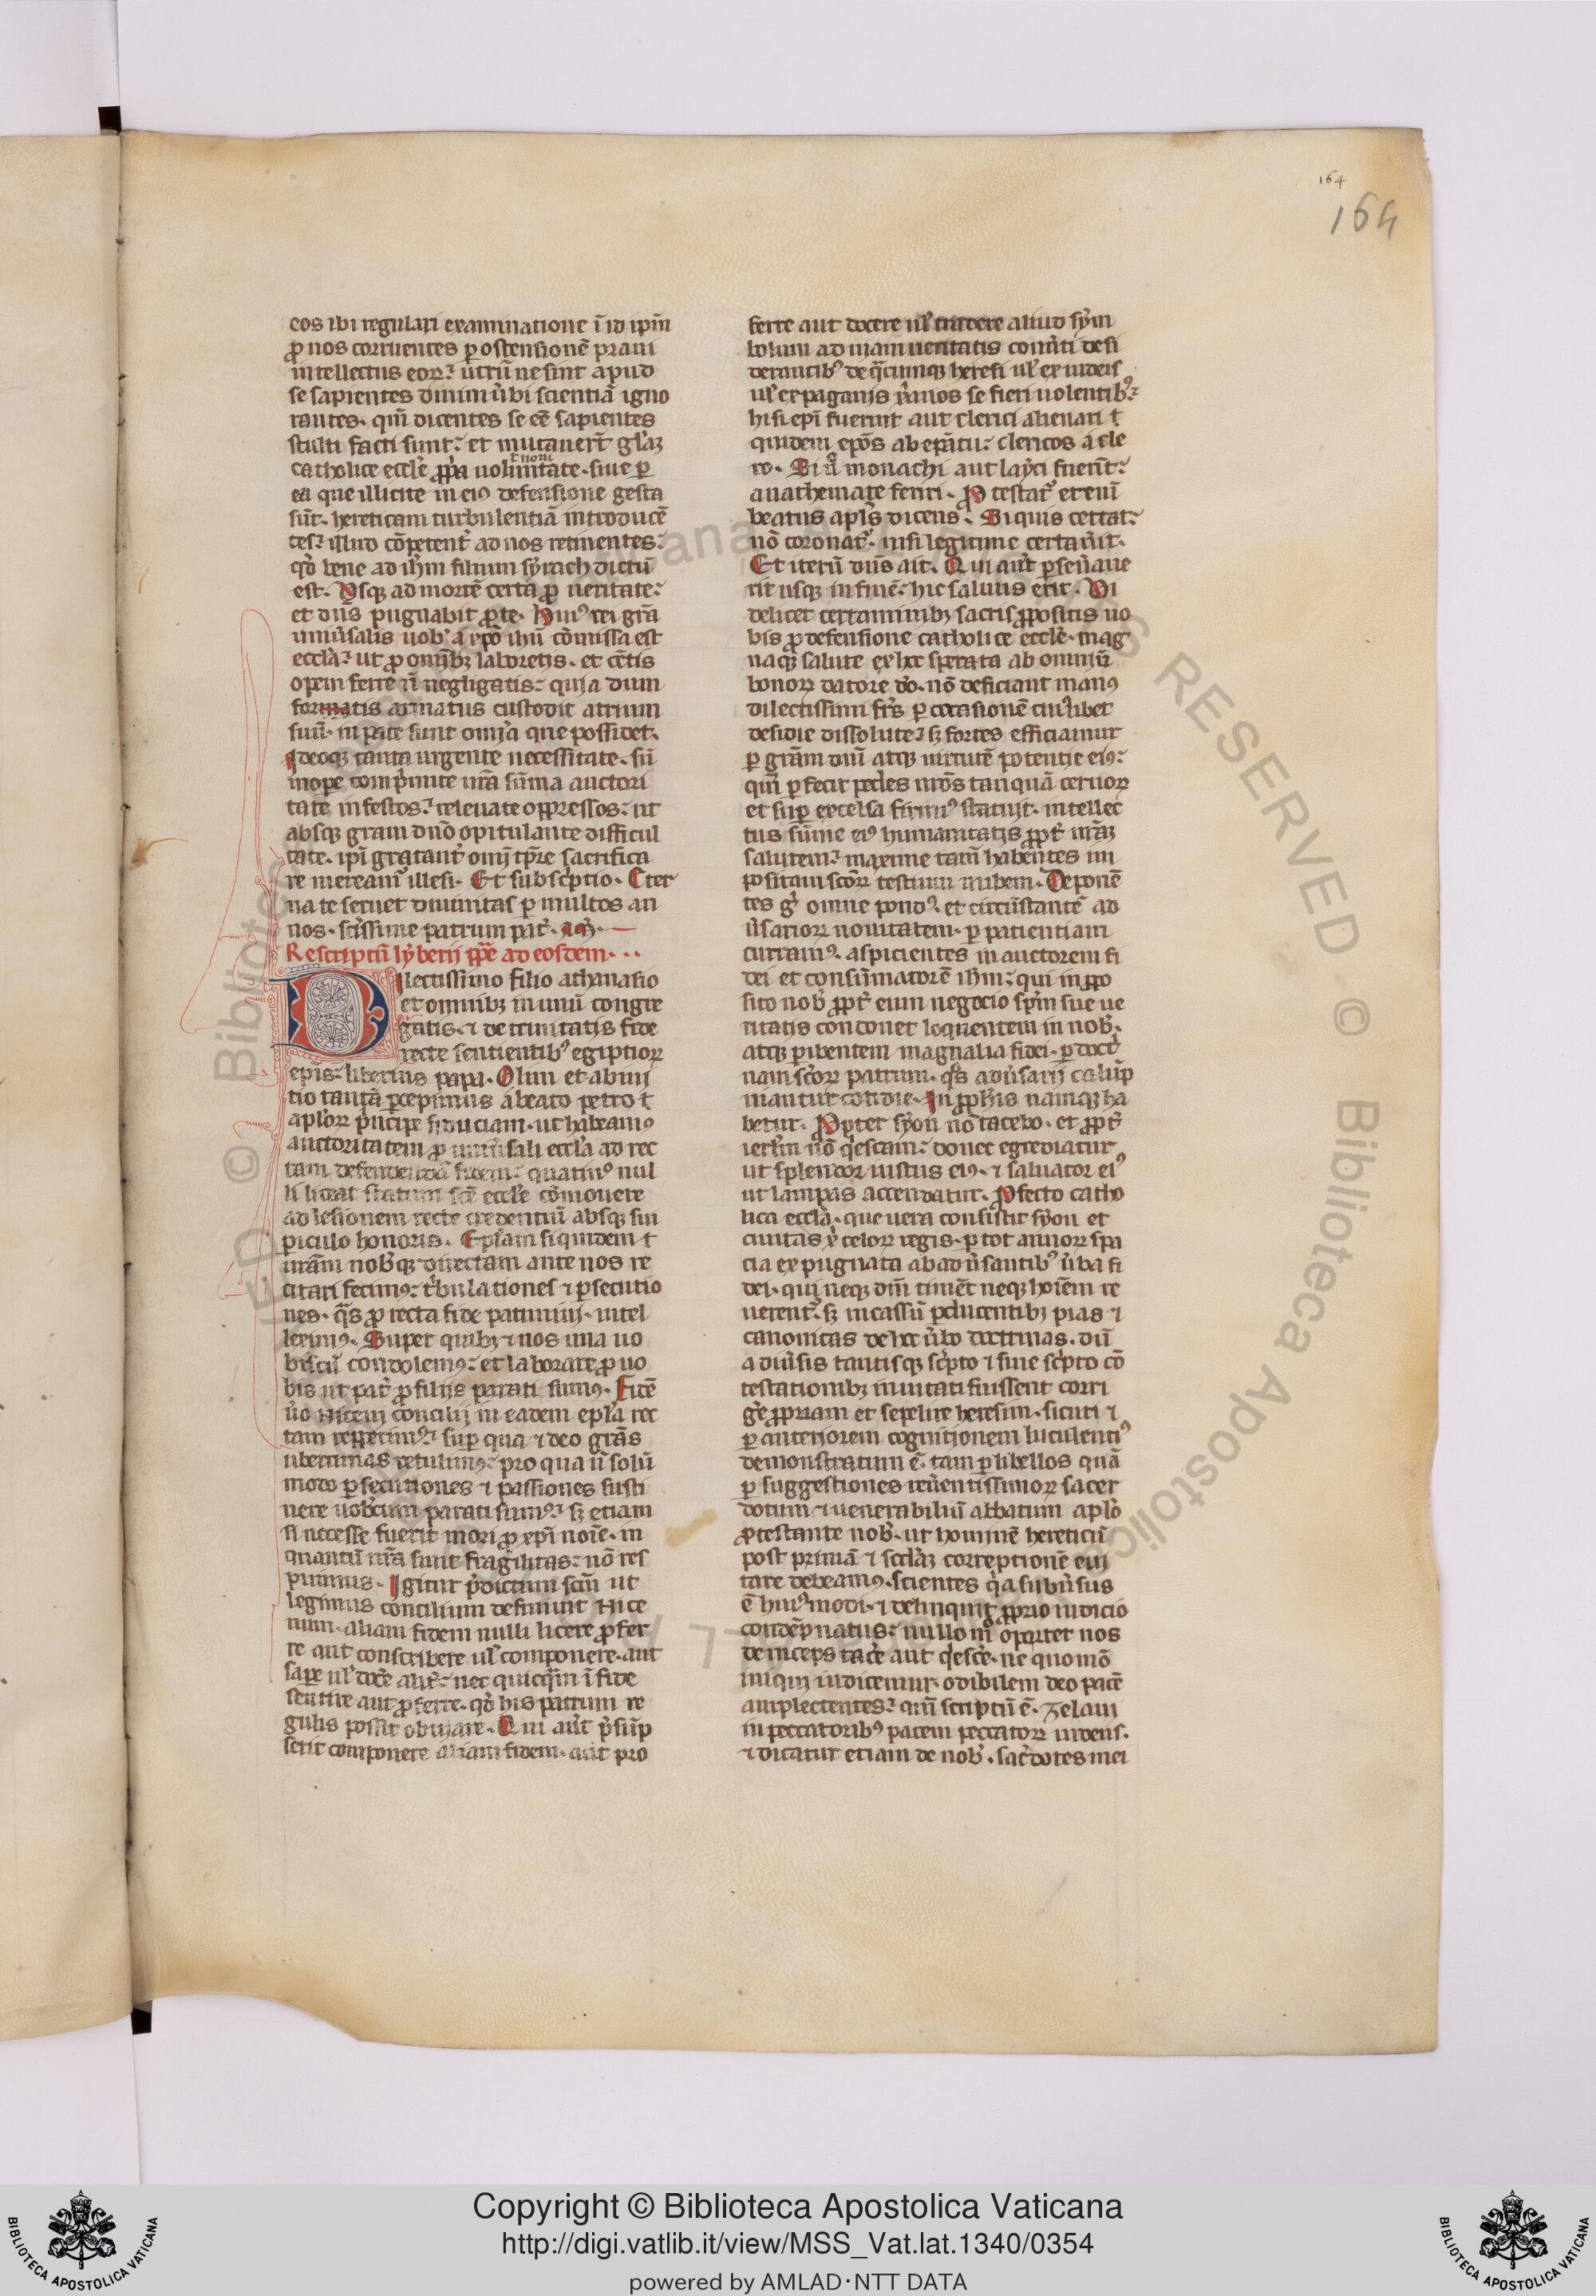 164
164
eos ibi regulari examinatione ĩ id ip̃m
ꝓ nos corruentes ꝑ ostensionẽ praui
intellectus eoꝝ: utrũ ne sint apud
se sapientes diuini ũbi scientiã igno
rantes. qm̃ dicentes se eẽ sapientes
stulti facti sunt: et mutauerũt gl̃aꝫ
catholice eccl̃e ꝓp̃a uoluntate. siue ꝑ
ea que illicite in eiꝰ defensione gesta
sũt. hereticam turbulentiã introducẽ
tes: illud cõpetent᷑ ad nos retinentes:
qđ bene ad ih̃m filium syrach dictũ
est. Vsqꝫ ad mortẽ certa ꝓ ueritate:
et dñs pugnabit ꝓ te. Huiꝰ rei gr̃a
uniũsalis uob̾ a xp̃o ih̃u cõmissa est
eccl̃a: ut ꝓ omĩbꝫ laboretis. et cũctis
opem ferre ñ negligatis: quia dum
formatis armatus custodit atrium
suũ. in pace sunt omia que possidet.
Ideoqꝫ tanta urgente necessitate. su
mope comprimite ur̃a sũma auctori
tate infestos: releuate oppressos: ut
absqꝫ graui dño opitulante difficul
tate. ip̃i gratant᷑ om̃i tp̃re sacrifica
re mereamꝰ illesi. Et subscriptio. Eter
na te seruet diuinitas ꝑ multos an
nos. sc̃issime patrum pat᷑. am̃.
Rescriptũ lyberii pp̃e ad eosdem.
Dilectissimo filio athanasio
et omnibꝫ in unũ congre
gatis. ⁊ de trinitatis fide
recte sentientibꝰ egiptioꝝ
ep̃is: liberius papa. Olim et ab ini
tio tantã ꝑcepimus a beato petro
apl̃oꝝ principe fiduciam. ut habeamꝰ
auctoritatem ꝓ uniũsali eccl̃a ad rec
tam defendendã fidem: quatinꝰ nul
li liceat statum sc̃e eccl̃e cõmouere
ad lesionem recte credentiũ absqꝫ sui
ꝑiculo honoris. Epl̃am siquidem
ur̃am nob̾qꝫ directam ante nos re
citari fecimꝰ: tribulationes ⁊ ꝑsecutio
nes. q̃s ꝓ recta fide patimini. intel
leximꝰ. Super quibꝫ ⁊ nos una uo
biscũ condolemꝰ: et laborare ꝓ uo
bis ut pat᷑ ꝓ filiis parati sumꝰ. Fidẽ
ũo niceni concilii in eadem epl̃a rec
tam repperimꝰ: sup̱ qua ⁊ deo gr̃as
uberrimas retulimꝰ: pro qua ñ solũ
modo ꝑsecutiones ⁊ passiones susti
nere uob̾cum parati sumꝰ: sꝫ etiam
si necesse fuerit mori ꝓ xp̃i noĩe. in
quantũ nr̃a sinit fragilitas: nõ res
puimus. Igitur p̃dictum sc̃m ut
legimus concilium definiuit nice
num. aliam fidem nulli licere ꝓfer
re aut conscribere ul̾ componere. aut
sape ul̾ doc̾e alit᷑: nec quicq̃m ĩ fide
sentire aut ꝓferre. qđ his patrum re
gulis possit obuiare. Qui aũt p̃sũp
serit componere aliam fidem. aut pro
ferre aut docere ul̾ tradere aliud sym
bolum ad uiam ueritatis conũti desi
derantibꝰ de q̃cumqꝫ heresi ul̾ ex iudeis
ul̾ ex paganis xp̃ianos se fieri uolentibꝰ:
hi si ep̃i fuerint aut clerici alienari
quidem ep̃os ab ep̃atu: clericos a cle
ro. Si ũ monachi aut layci fuerĩt:
anathemate feriri. Protestat᷑ et enĩ
beatus apl̃s dicens. Si quis certat:
nõ coronat᷑. nisi legitime certaũit.
Et iterũ dñs ait. Qui aũt ꝑseũaue
rit usqꝫ in finẽ: hic saluus erit. Vi
delicet certaminibꝫ sacris ꝓpositis uo
bis ꝓ defensione catholice eccl̃e. mag
naqꝫ salute ex hoc sperata ab omniũ
bonoꝝ datore do. nõ deficiant manꝰ
dilectissimi fr̃s ꝑ occasionẽ cuiꝰlibet
desidie dissolute: sꝫ fortes efficiamur
ꝑ gr̃am dñi atqꝫ uirtutẽ potentie eiꝰ:
qui ꝑfecit pedes nr̃os tanquã ceruoꝝ
et sup̱ excelsa firmiꝰ statuit. intellec
tus sũme eiꝰ humanitatis ꝓpt᷑ nr̃aꝫ
salutem: maxime tantã habentes im
positam sc̃oꝝ testium nubem. Deponẽ
tes gͦ omne pondꝰ. et circũstantẽ ad
ũsarioꝝ nouitatem. ꝑ patientiam
curramꝰ. aspicientes in auctorem fi
dei et consũmatorẽ ih̃m: qui in ꝓpo
sito nob̾ ꝓpt᷑ eum negocio sp̃m sue ue
ritatis condonet loquentem in nob̾.
atqꝫ ꝑibentem magnalia fidei. ꝑ doct᷑
nam sc̃oꝝ patrum. q̃s adũsarii calũp
niantur cotidie. In ꝓph̾is namqꝫ ha
betur. Propter syon nõ tacebo. et ꝓpt᷑
ierl̃m nõ qͥescam: donec egrediatur
ut splendor iustus eiꝰ. ⁊ saluator eiꝰ
ut lampas accendatur. Profecto catho
lica eccl̃a. que uera consistit syon et
ciuitas x̃ celoꝝ regis. ꝑ tot annoꝝ spa
cia expugnata ab adũsantibꝰ ũba fi
dei. qui neqꝫ dñi timẽt neqꝫ hoĩem re
uerent᷑. sꝫ in cassũ ꝑducentibꝫ pias ⁊
canonicas de hoc ũbo doctrinas. dũ
a diũsis tantisqꝫ scͥpto ⁊ sine scͥpto cõ
testationibꝫ inuitati fuissent corri
g̾e ꝓpriam et sepelire heresim. sicuti ⁊
ꝑ anteriorem cognitionem luculentiꝰ
demonstratum ẽ. tam ꝑ libellos quã
ꝑ suggestiones reũentissimoꝝ sacer
dotum ⁊ uenerabiliũ abbatum apl̾o
ꝓtestante nob̾. ut hominẽ hereticũ
post primã ⁊ sc̃d̃aꝫ correptionẽ eui
tare debeamꝰ. scientes qͥa subũsus
ẽ huiꝰmodi. ⁊ delinquit ꝓprio iudicio
condẽpnatus: nullo mͦ oportet nos
deinceps tac̾e aut qͥesc̾e. ne quomõ
iniqui iudicemur. odibilem deo pacẽ
amplectentes: qm̃ scriptũ ẽ. Zelaui
in peccatoribꝰ pacem peccatoꝝ uidens.
⁊ dicatur etiam de nob̾. sac̾dotes mei
Copyright © Biblioteca Apostolica Vaticana
http://digi.vatlib.it/view/MSS_Vat.lat.1340/0354
powered by AMLAD·NTT DATA
BIBLIOTECA APOSTOLICA VATICANA
BIBLIOTECA APOSTOLICA VATICANA